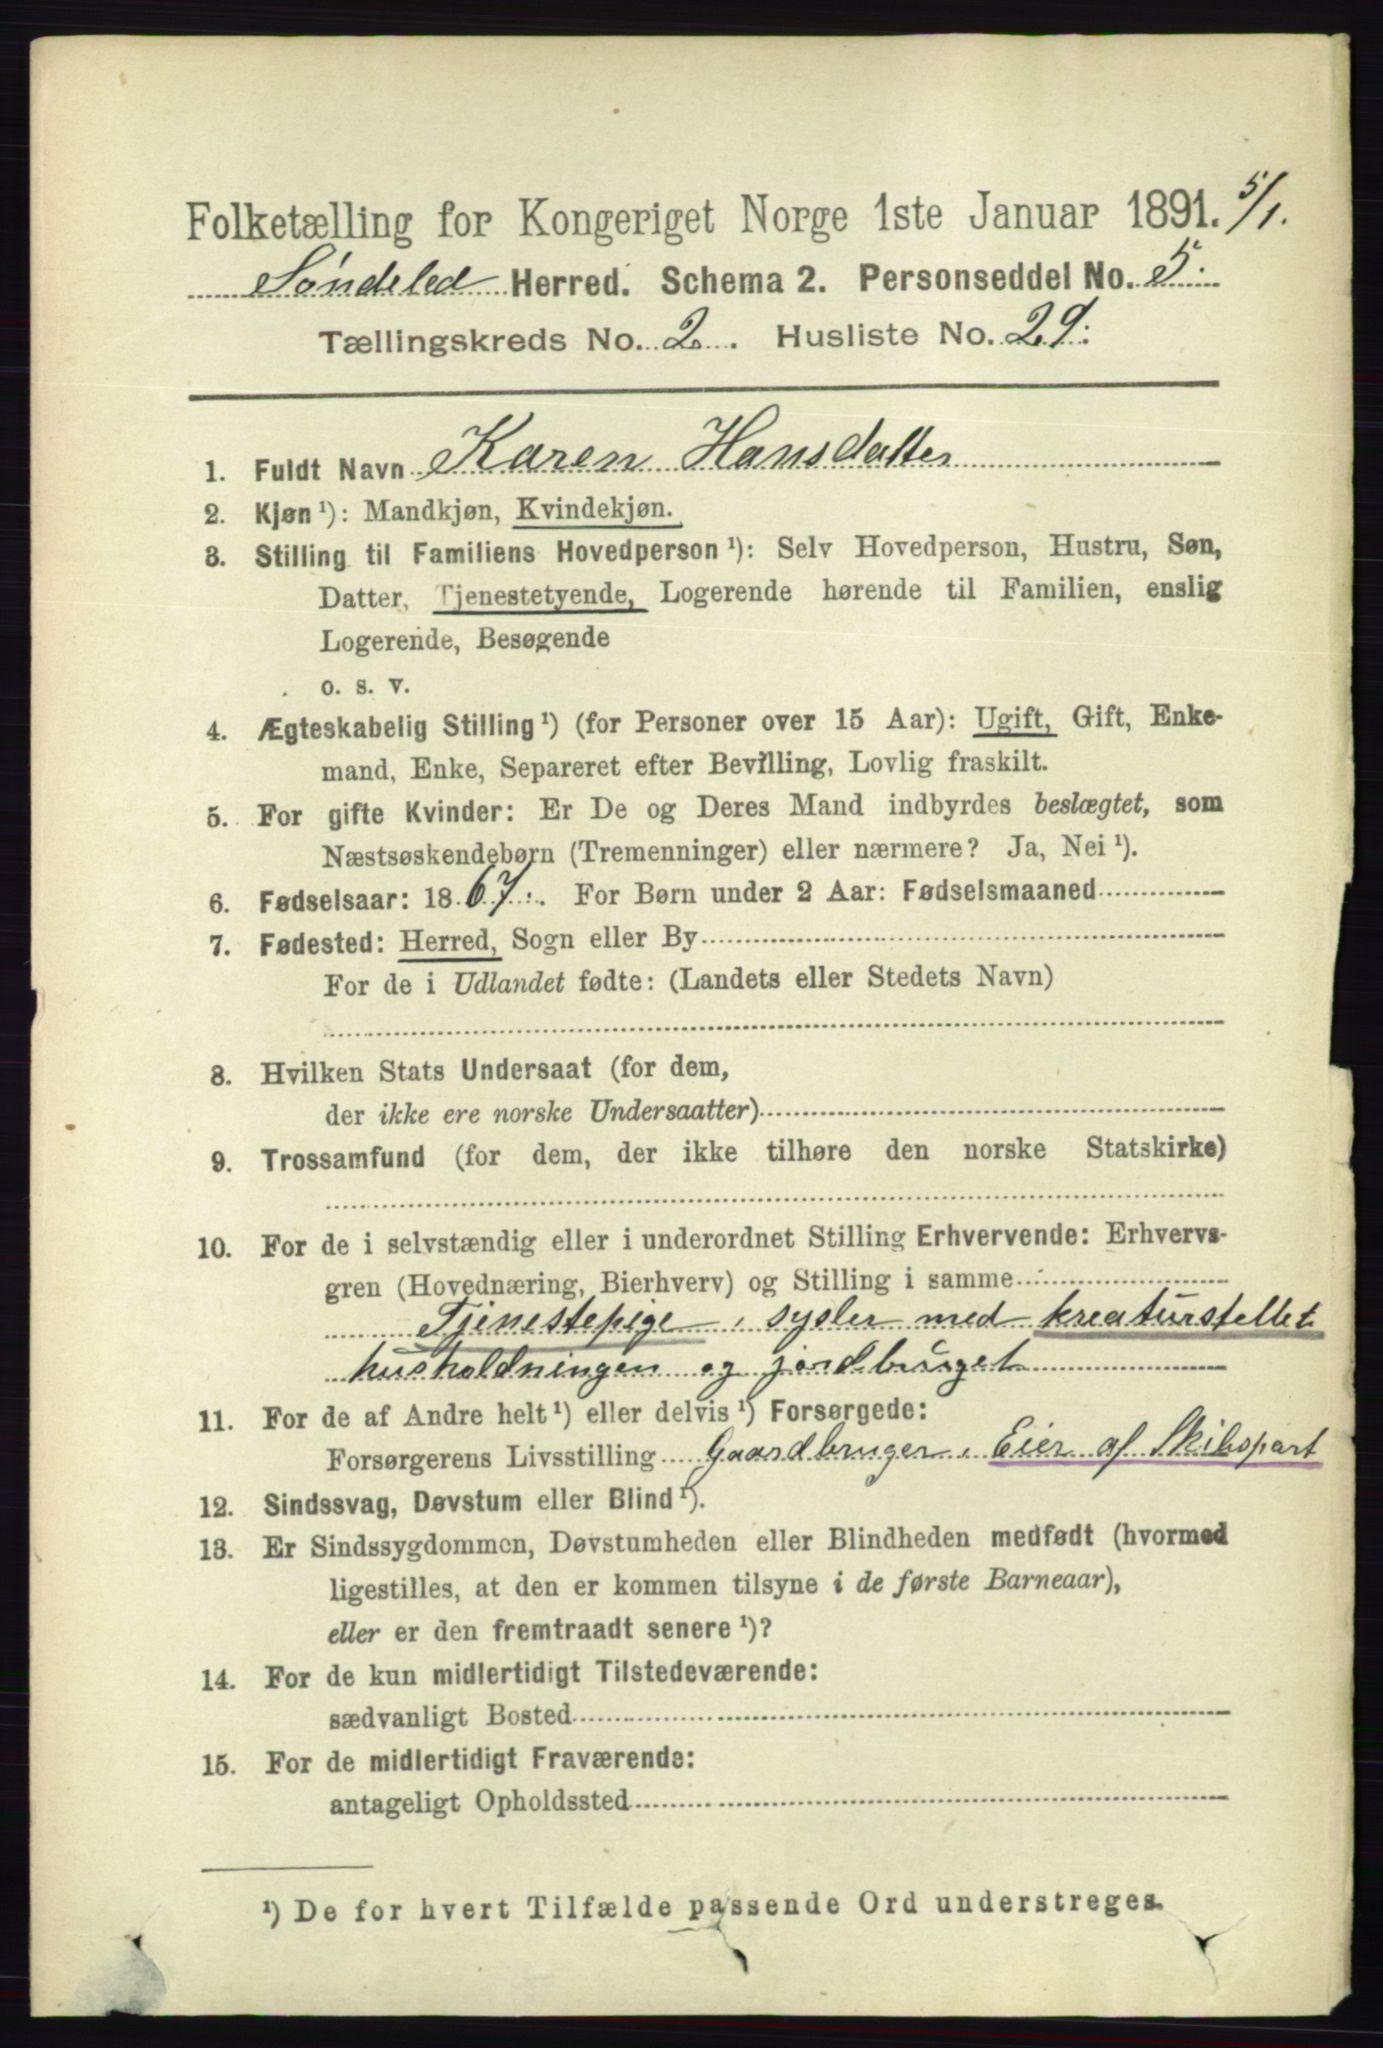 Folketælling for Kongeriget Norge 1ste Januar 1891. 5/1.
Søndeled Herred. Schema 2. Personseddel No. 5.
Tællingskreds No. 2. Husliste No. 29.
1. Fuldt Navn Karen Hansdatter
2. Kjøn ¹): Mandkjøn, Kvindekjøn.
3. Stilling til Familiens Hovedperson ¹): Selv Hovedperson, Hustru, Søn,
Datter, Tjenestetyende, Logerende hørende til Familien, enslig
Logerende, Besøgende
o. s. v.
4. Ægteskabelig Stilling ¹) (for Personer over 15 Aar): Ugift, Gift, Enke-
mand, Enke, Separeret efter Bevilling, Lovlig fraskilt.
5. For gifte Kvinder: Er De og Deres Mand indbyrdes beslægtet, som
Næstsøskendebørn (Tremenninger) eller nærmere? Ja, Nei ¹).
6. Fødselsaar: 1867. For Børn under 2 Aar: Fødselsmaaned
7. Fødested: Herred, Sogn eller By
For de i Udlandet fødte: (Landets eller Stedets Navn)
8. Hvilken Stats Undersaat (for dem,
der ikke ere norske Undersaatter)
9. Trossamfund (for dem, der ikke tilhøre den norske Statskirke)
10. For de i selvstændig eller i underordnet Stilling Erhvervende: Erhvervs-
gren (Hovednæring, Bierhverv) og Stilling i samme
Tjenestepige, sysler med kreaturstellet
husholdningen og jordbruget
11. For de af Andre helt ¹) eller delvis ¹) Forsørgede:
Forsørgerens Livsstilling Gaardbruger, Eier af Skibspart
12. Sindssvag, Døvstum eller Blind ¹).
13. Er Sindssygdommen, Døvstumheden eller Blindheden medfødt (hvormed
ligestilles, at den er kommen tilsyne i de første Barneaar),
eller er den fremtraadt senere ¹)?
14. For de kun midlertidigt Tilstedeværende:
sædvanligt Bosted
15. For de midlertidigt Fraværende:
antageligt Opholdssted
¹) De for hvert Tilfælde passende Ord understreges.